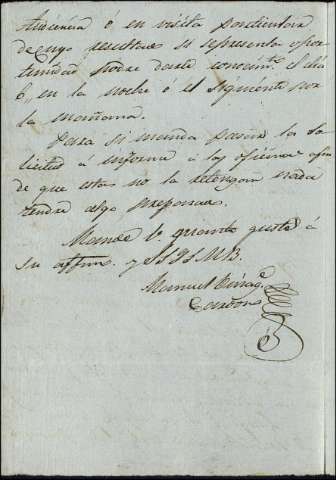 Audiencia ó en visita particular
de cuyo resultado si se presenta opor-
tunidad podré darle conocimto. el dia
6, en la noche ó el siguiente por
la mañana.
Para si manda pasar la so-
licitud á informe á las oficinas afin
de que estas no la detengan nada
tendré algo preparado.
Mande V. quanto guste á
su affmo. y SSQSMB.
Manuel
Cardon